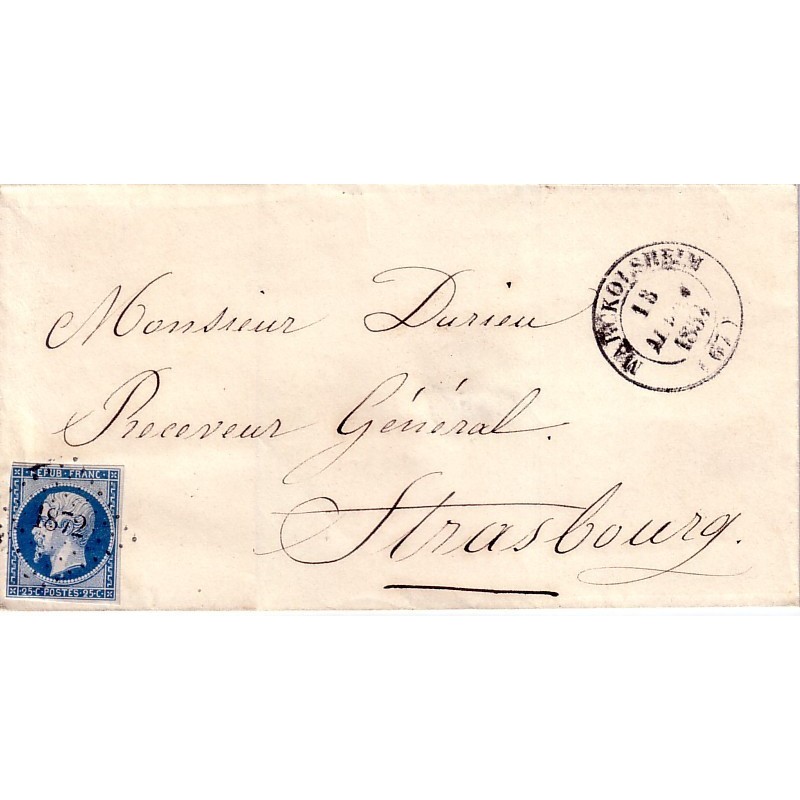 Monsieur Durieu
Receveur Général
Strasbourg.
MARCKOLSHEIM
18
(67)
REPUB FRANC
1872
25·C·POSTES·25·C·